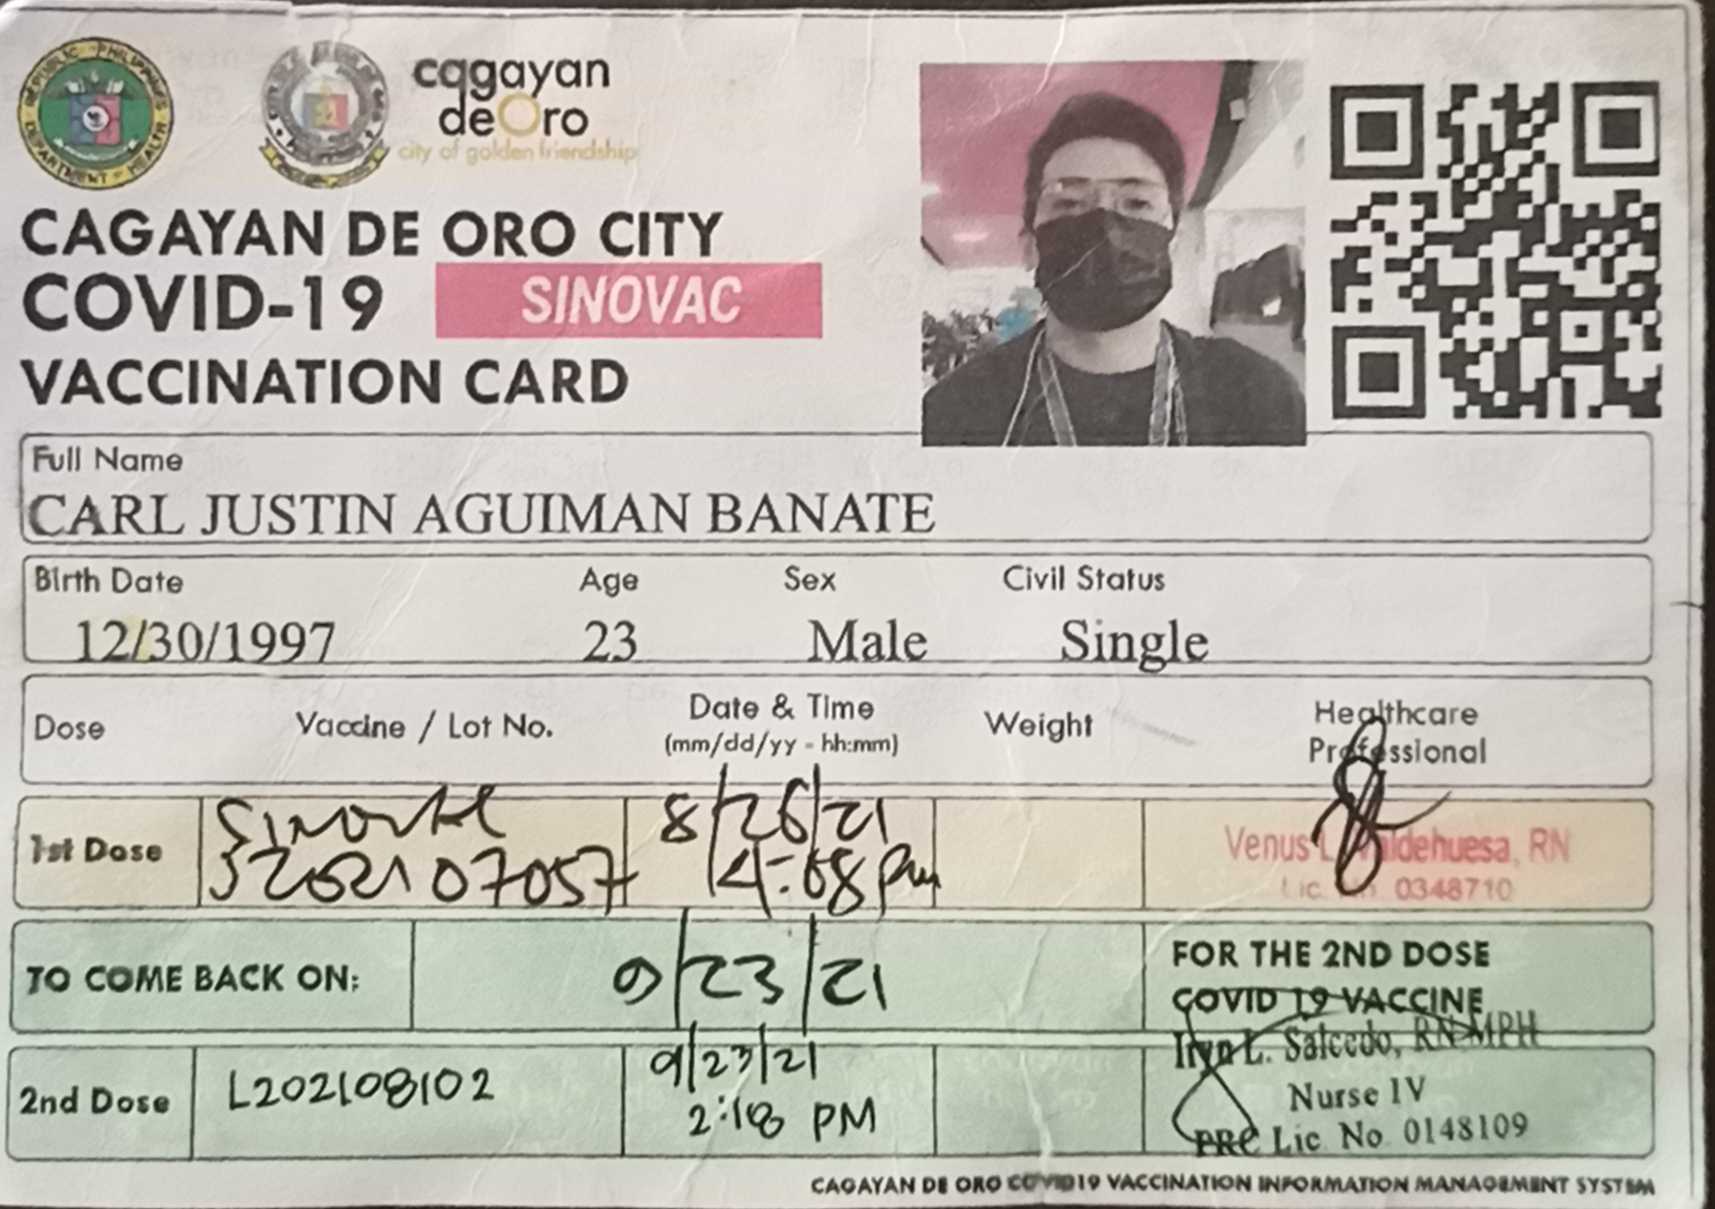 REPUBLIC OF PHILIPPINES
DEPARTMENT OF HEALTH
cagayan
deOro
city of golden friendship
CAGAYAN DE ORO CITY
COVID-19 SINOVAC
VACCINATION CARD
Full Name
CARL JUSTIN AGUIMAN BANATE
Birth Date Age Sex Civil Status
12/30/1997 23 Male Single
Dose Vaccine / Lot No. Date & Time Weight Healthcare
(mm/dd/yy - hh:mm) Professional
1st Dose Sinovac 8/26/21
J202107057 4:08 pm
Venus L. Valdehuesa, RN
Lic. 0348710
TO COME BACK ON: 9/23/21 FOR THE 2ND DOSE
COVID 19 VACCINE
2nd Dose L202108102 9/23/21
2:18 PM
L. Salcedo, RN MPH
Nurse IV
PRC Lic. No 0148109
CAGAYAN DE ORO COVID19 VACCINATION INFORMATION MANAGEMENT SYSTEM